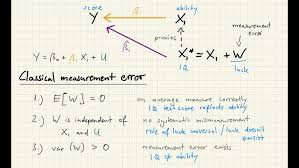 score
ability
Y
β₁
X₁
measurement error
proxies
β₁
Y = β₀ + β₁ X₁ + U
X₁* = X₁ + W
IQ
luck
Classical measurement error
1.) E[W] = 0
on average measure correctly
IQ test score reflects ability
2.) W is independent of X₁ and U
no systematic mismeasurement
role of luck universal / luck doesn't persist
3.) var (W) > 0
measurement error exists
IQ ≠ ability